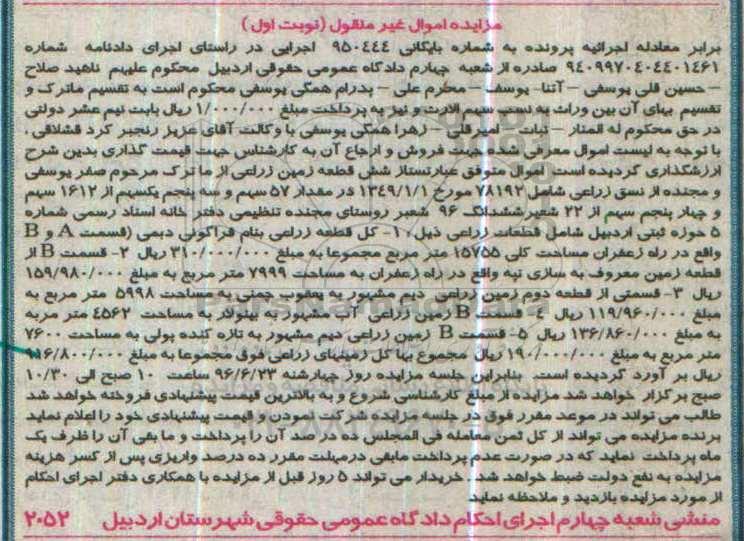 مزایده اموال غیر منقول (نوبت اول)
برابر معادله اجرائیه پرونده به شماره بایگانی ۹۵۰۴۴۴ اجرایی در راستای اجرای دادنامه شماره
۹۴۰۹۹۷۰۴۰۴۴۰۱۴۶۱ صادره از شعبه چهارم دادگاه عمومی حقوقی اردبیل محکوم علیهم ناهید صلاح
– حسین قلی یوسفی – آتنا- یوسف – محرم علی – پدرام همگی یوسفی محکوم است به تقسیم ماترک و
تقسیم بهای آن بین وراث به نسبت سهم الارث و نیز به پرداخت مبلغ ۱/۰۰۰/۰۰۰ ریال بابت نیم عشر دولتی
در حق محکوم له المنار – نبات – امیرقلی – زهرا همگی یوسفی با وکالت آقای عزیز رنجبر کرد قشلاقی.
با توجه به لیست اموال معرفی شده جهت فروش و ارجاع آن به کارشناس جهت قیمت گذاری بدین شرح
ارزشگذاری گردیده است. اموال متوفی عبارتستاز شش قطعه زمین زراعی از ما ترک مرحوم صفر یوسفی
و مجنده از نسق زراعی شامل ۷۸۱۹۲ مورخ ۱۳۴۹/۱/۱ در مقدار ۵۷ سهم و سه پنجم یکسهم از ۱۶۱۲ سهم
و چهار پنجم سهم از ۲۲ شعیرششدانگ ۹۶ شعیر روستای مجنده تنظیمی دفتر خانه اسناد رسمی شماره
۵ حوزه ثبتی اردبیل شامل قطعات زراعی ذیل ، ۱- کل قطعه زراعی بنام قراگونی دیمی (قسمت A و B
واقع در راه زعفران مساحت کلی ۱۵۷۵۵ متر مربع مجموعا به مبلغ ۳۱۰/۰۰۰/۰۰۰ ریال ۲- قسمت B از
قطعه زمین معروف به سازی تپه واقع در راه زعفران به مساحت ۷۹۹۹ متر مربع به مبلغ ۱۵۹/۹۸۰/۰۰۰
ریال ۳- قسمتی از قطعه دوم زمین زراعی دیم مشهور به یعقوب چمنی به مساحت ۵۹۹۸ متر مربع به
مبلغ ۱۱۹/۹۶۰/۰۰۰ ریال ۴- قسمت B زمین زراعی آب مشهور به بیئولار به مساحت ۴۵۶۲ متر مربه
به مبلغ ۱۳۶/۸۶۰/۰۰۰ ریال ۵- قسمت B زمین زراعی دیم مشهور به تازه کنده یولی به مساحت ۷۶۰۰
متر مربع به مبلغ ۱۹۰/۰۰۰/۰۰۰ ریال مجموع بها کل زمینهای زراعی فوق مجموعا به مبلغ ۹۱۶/۸۰۰/۰۰۰
ریال بر آورد گردیده است. بنابراین جلسه مزایده روز چهارشنه ۹۶/۶/۲۳ ساعت ۱۰ صبح الی ۱۰/۳۰
صبح برگزار خواهد شد مزایده از مبلغ کارشناسی شروع و به بالاترین قیمت پیشنهادی فروخته خواهد شد
طالب می تواند در موعد مقرر فوق در جلسه مزایده شرکت نمودن و قیمت پیشنهادی خود را اعلام نماید
برنده مزایده می تواند از کل ثمن معامله فی المجلس ده در صد آن را پرداخت و ما بقی آن را ظرف یک
ماه پرداخت نماید که در صورت عدم پرداخت مابقی درمهلت مقرر ده درصد واریزی پس از کسر هزینه
مزایده به نفع دولت ضبط خواهد شد. خریدار می تواند ۵ روز قبل از مزایده با همکاری دفتر اجرای احکام
از مورد مزایده بازدید و ملاحظه نماید
منشی شعبه چهارم اجرای احکام دادگاه عمومی حقوقی شهرستان اردبیل ۲۰۵۲